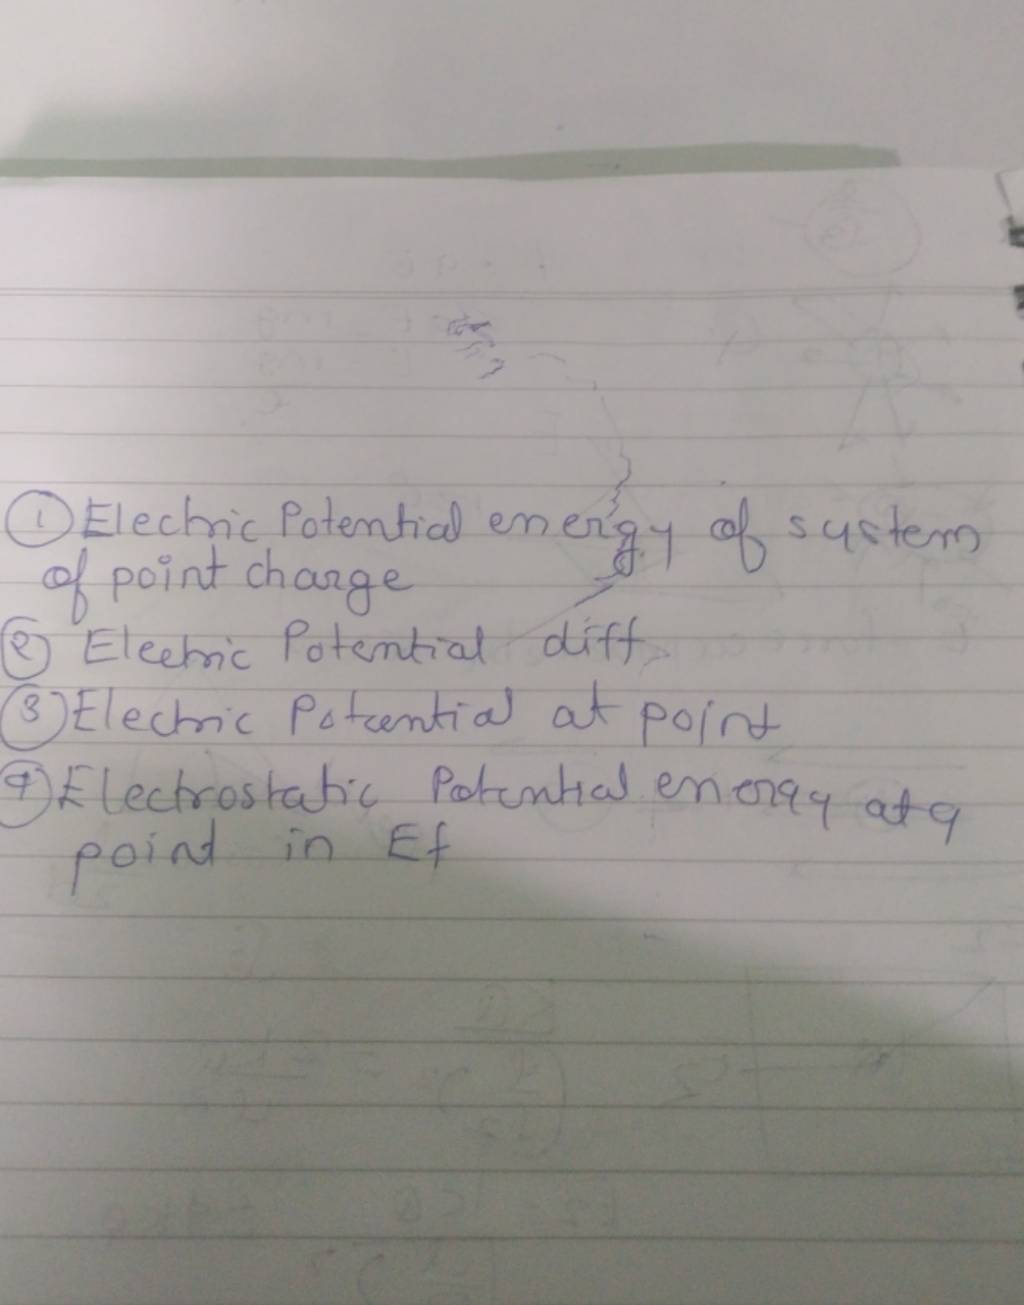 ① Electric Potential energy of system
of point charge
② Electric Potential diff
③ Electric Potential at point
④ Electrostatic Potential energy at a
point in Ef